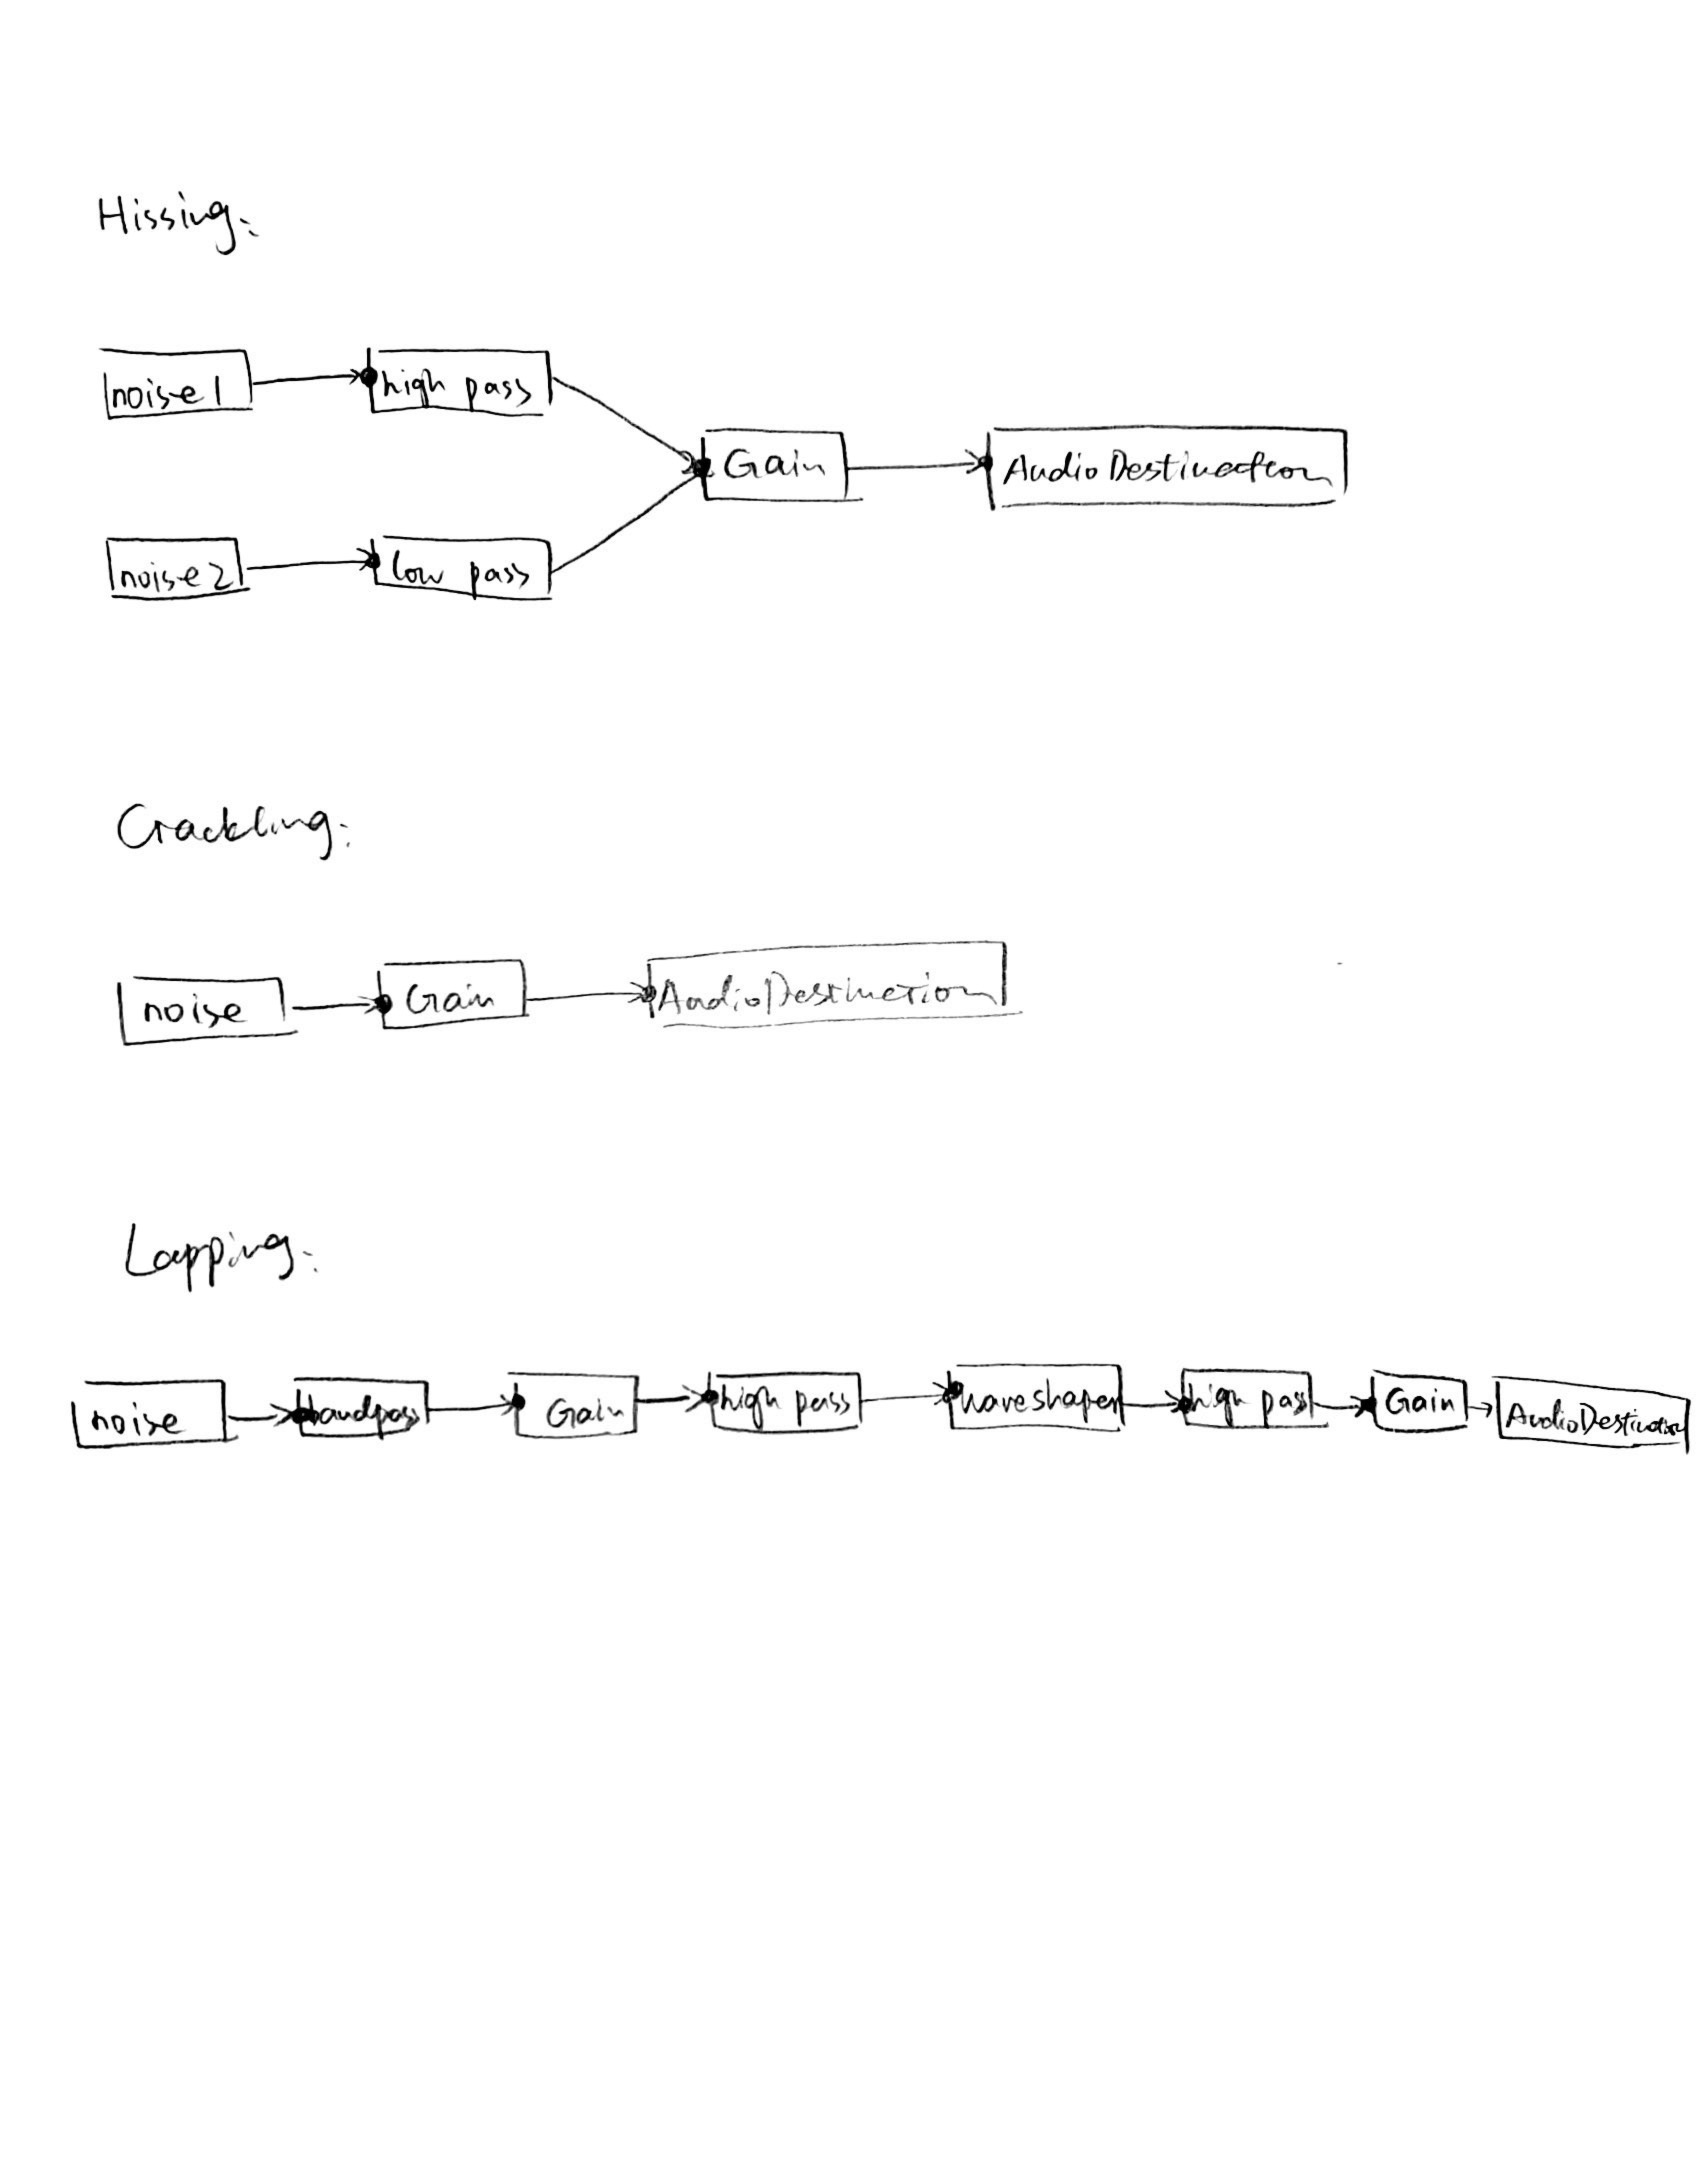 Hissing:
noise1 high pass
Gain AudioDestination
noise2 low pass
Crackling:
noise Gain AudioDestination
Lapping:
noise bandpass Gain high pass waveshaper high pass Gain AudioDestination